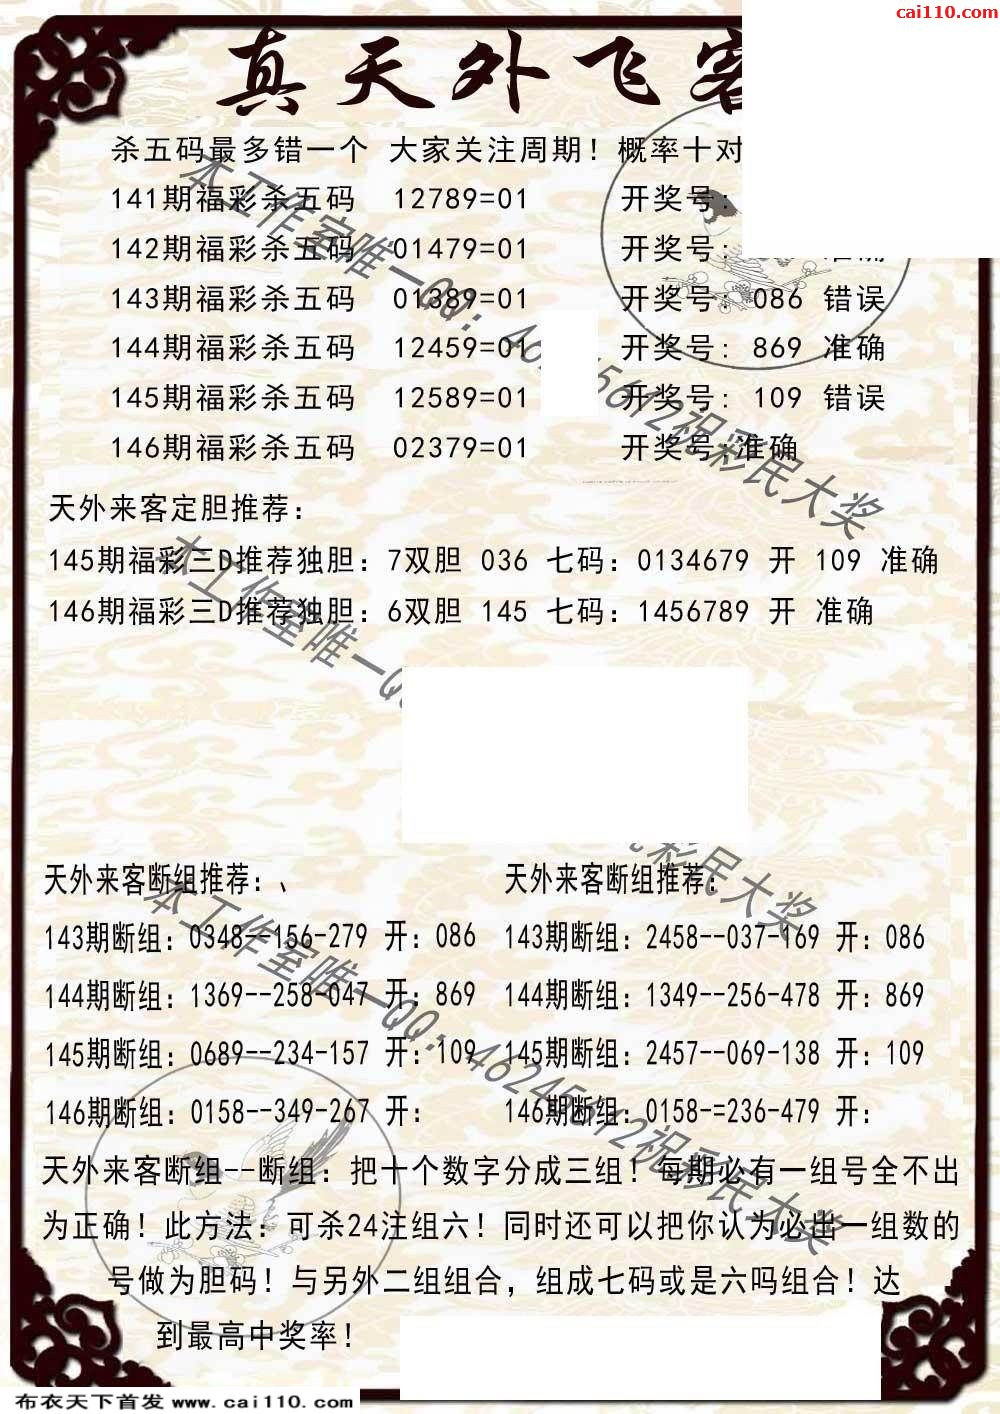 cai110.com
真天外飞客
杀五码最多错一个 大家关注周期！概率十对
141期福彩杀五码 12789=01 开奖号:
142期福彩杀五码 01479=01 开奖号: 准确
143期福彩杀五码 01389=01 开奖号: 086 错误
144期福彩杀五码 12459=01 开奖号: 869 准确
145期福彩杀五码 12589=01 开奖号: 109 错误
146期福彩杀五码 02379=01 开奖号:准确
天外来客定胆推荐:
145期福彩三D推荐独胆: 7双胆 036 七码: 0134679 开 109 准确
146期福彩三D推荐独胆: 6双胆 145 七码: 1456789 开 准确
天外来客断组推荐:、
143期断组: 0348--156-279 开: 086
144期断组: 1369--258-047 开: 869
145期断组: 0689--234-157 开: 109
146期断组: 0158--349-267 开:
天外来客断组推荐:
143期断组: 2458--037-169 开: 086
144期断组: 1349--256-478 开: 869
145期断组: 2457--069-138 开: 109
146期断组: 0158-=236-479 开:
天外来客断组--断组: 把十个数字分成三组！每期必有一组号全不出
为正确！此方法: 可杀24注组六！同时还可以把你认为必出一组数的
号做为胆码！与另外二组组合, 组成七码或是六吗组合！达
到最高中奖率！
本工作室唯一QQ: 46245612祝彩民大奖
本工作室唯一Q
彩民大奖
本工作室唯一QQ: 46245612祝彩民大奖
布衣天下首发 www.cai110.com